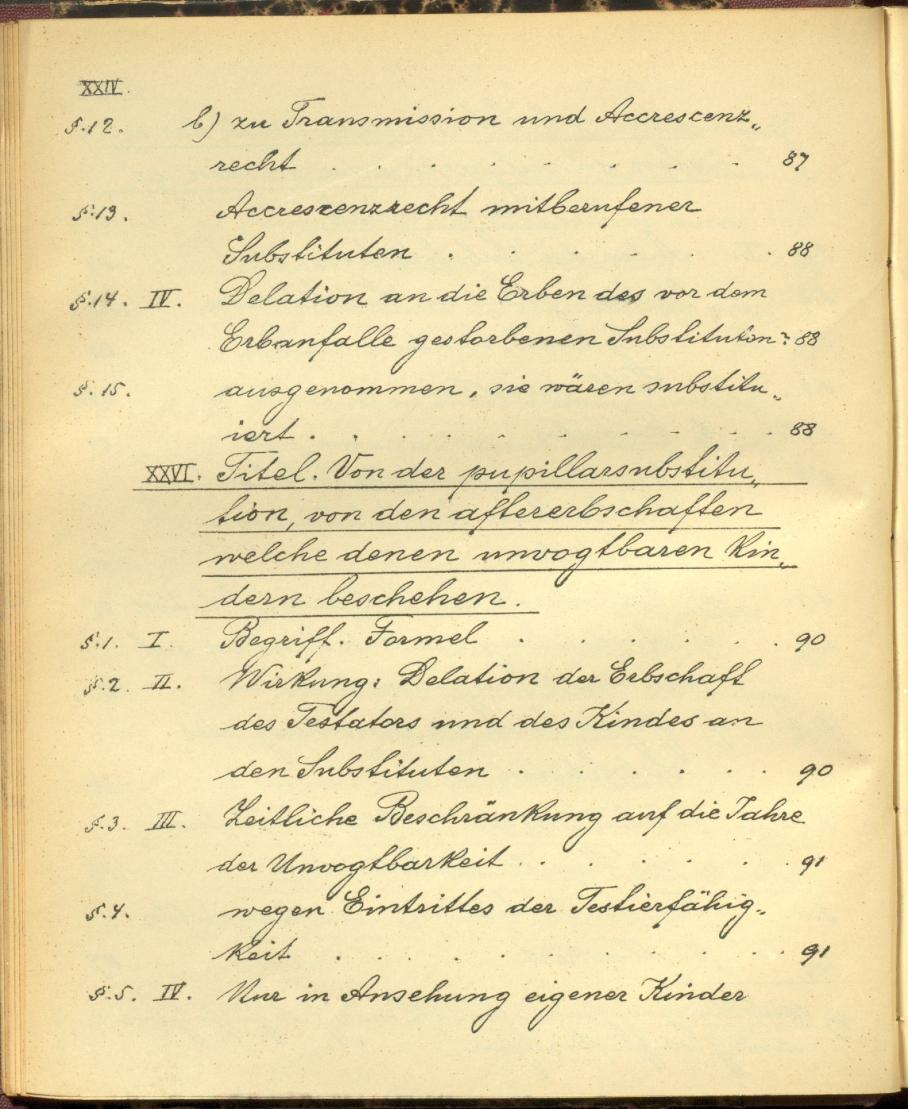 XXIV.
§.12. b) zu Transmission und Accrescenz„
recht . . . . . . . . 87
§.13. Accrescenzrecht mitberufener
Substituten . . . . . . 88
§.14. IV. Delation an die Erben des vor dem
Erbanfalle gestorbenen Substituten: 88
§.15. ausgenommen, sie wären substitu„
iert . . . . . . . . . 88
XXVI. Titel. Von der pupillarsubstitu„
tion, von den aftererbschaften
welche denen unvogtbaren Kin„
dern beschehen.
§.1. I. Begriff. Formel . . . . . . 90
§.2. II. Wirkung: Delation der Erbschaft
des Testators und des Kindes an
den Substituten . . . . . . 90
§.3. III. Zeitliche Beschränkung auf die Jahre
der Unvogtbarkeit . . . . . . 91
§.4. wegen Eintrittes der Testierfähig„
keit . . . . . . . . . . 91
§.5. IV. Nur in Ansehung eigener Kinder